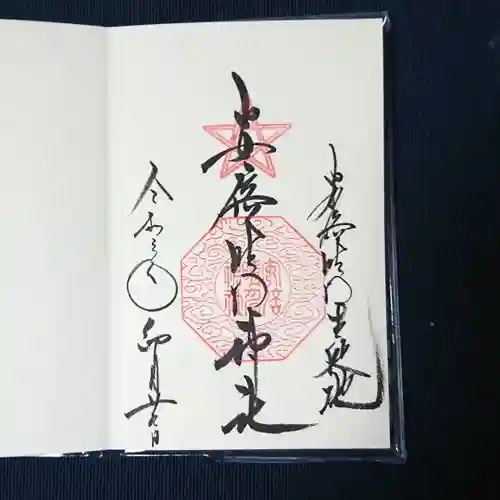 安倍晴明生誕地
安倍晴明神社
令和三年 卯月日